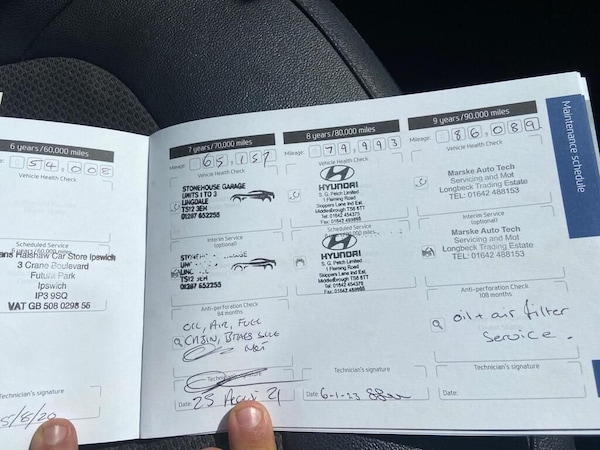 6 years/60,000 miles
54,008
Vehicle Health Check
Scheduled Service
6 years/60,000 miles
ans Halshaw Car Store Ipswich
3 Crane Boulevard
Futura Park
Ipswich
IP3 9SQ
VAT GB 508 0298 56
Technician's signature
5/8/20
7 years/70,000 miles
Mileage: 65,157
Vehicle Health Check
STONEHOUSE GARAGE
UNITS 1 TO 3
LINGDALE
TS12 3EH
01287 652255
Interim Service
(optional)
TS12 3EH
01287 652255
Anti-perforation Check
84 months
OIL, AIR, FUEL
Technician's signature
Date: 25 Aug 21
8 years/80,000 miles
Mileage: 79,993
Vehicle Health Check
HYUNDAI
S. G. Petch Limited
1 Fleming Road
Skippers Lane Ind Est.
Middlesbrough TS6 6TT
Tel: 01642 454373
Scheduled Service
HYUNDAI
S. G. Petch Limited
1 Fleming Road
Skippers Lane Ind Est.
Middlesbrough TS6 6TT
Tel: 01642 454373
Technician's signature
Date: 6-1-23
9 years/90,000 miles
Mileage: 86,089
Vehicle Health Check
Marske Auto Tech
Servicing and Mot
Longbeck Trading Estate
TEL: 01642 488153
Interim Service
(optional)
Marske Auto Tech
Servicing and Mot
Longbeck Trading Estate
TEL: 01642 488153
Anti-perforation Check
108 months
oil + air filter
Service.
Technician's signature
Date:
Maintenance schedule